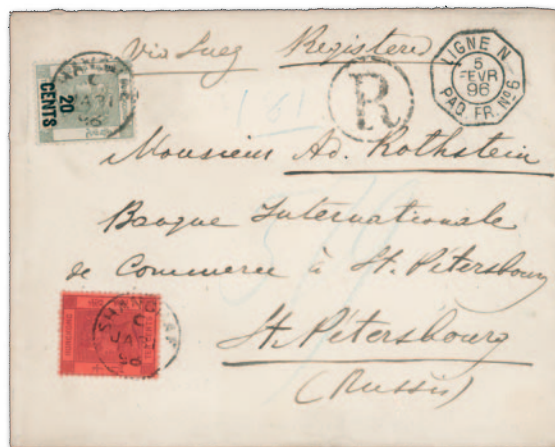 Via Suez Registered
LIGNE N
5
FEVR
96
PAQ. FR. Nº 6
R
20
CENTS
Monsieur Ad. Rothstein
Banque Internationale
de Commerce à St. Pétersbourg
St. Pétersbourg
(Russie)
SHANGHAI
C
JA